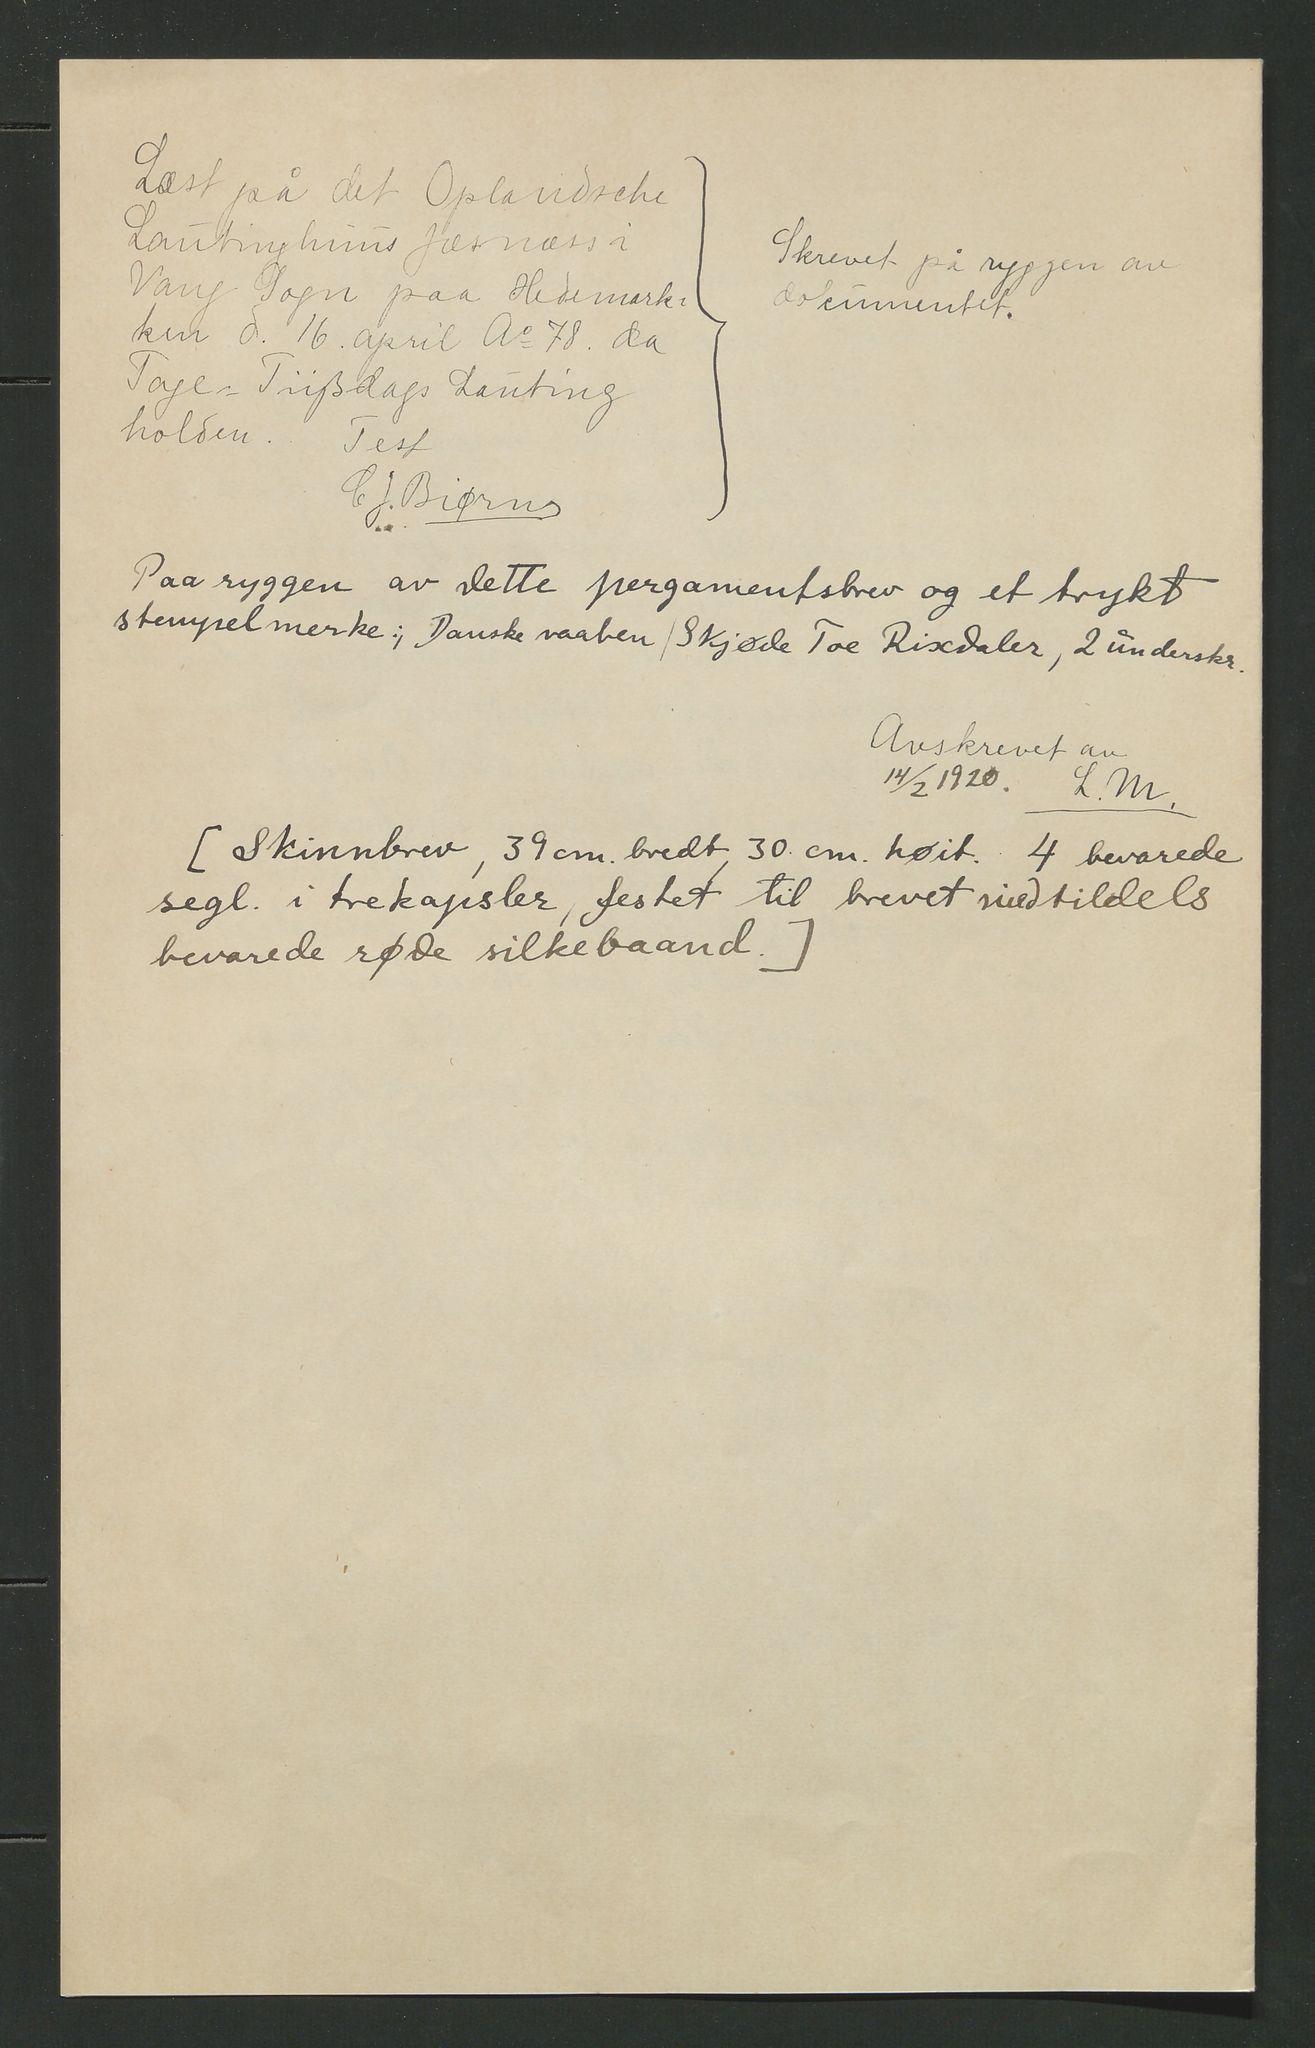 Læst på det Oplandsche
Lautinghuus Jæsnæss i
Vang Sogn paa Hedemark-
ken d. 16. april Aº 78. da
Tage- Tiißdags Lauting
holden. Test
C J. Biørns
Skrevet på ryggen av
dokumentet.
Paa ryggen av dette pergamentsbrev og et trykt
stempelmerke:, Danske vaaben / Skjøde Toe Rixdaler, 2 underskr.
Avskrevet av
14/2 1920. L. M.
[ Skinnbrev, 39 cm. bredt, 30. cm. høit. 4 bevarede
segl. i trekapsler, festet til brevet med tildels
bevarede røde silkebaand. ]